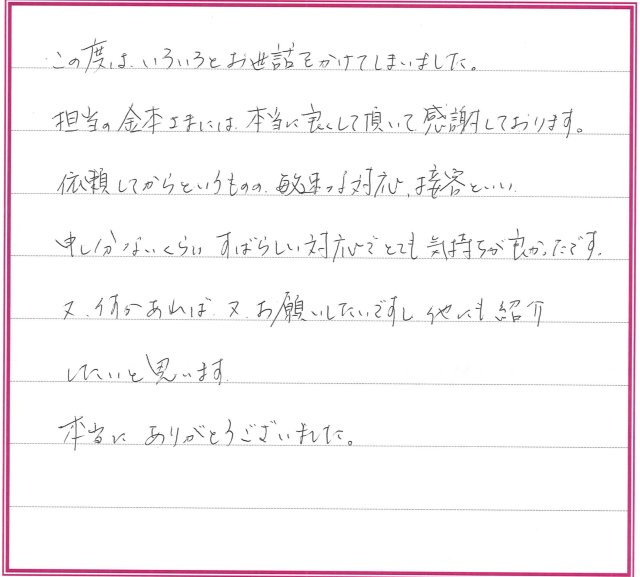 この度は、いろいろとお世話をかけてしまいました。
担当の金本さまには、本当に良くして頂いて感謝しております。
依頼してからというものの、敏速な対応、接客といい、
申し分ないくらい すばらしい対応で とても 気持ちが良かったです。
又、何かあれば、又、お願いしたいですし 他にも 紹介
したいと思います。
本当に ありがとうございました。